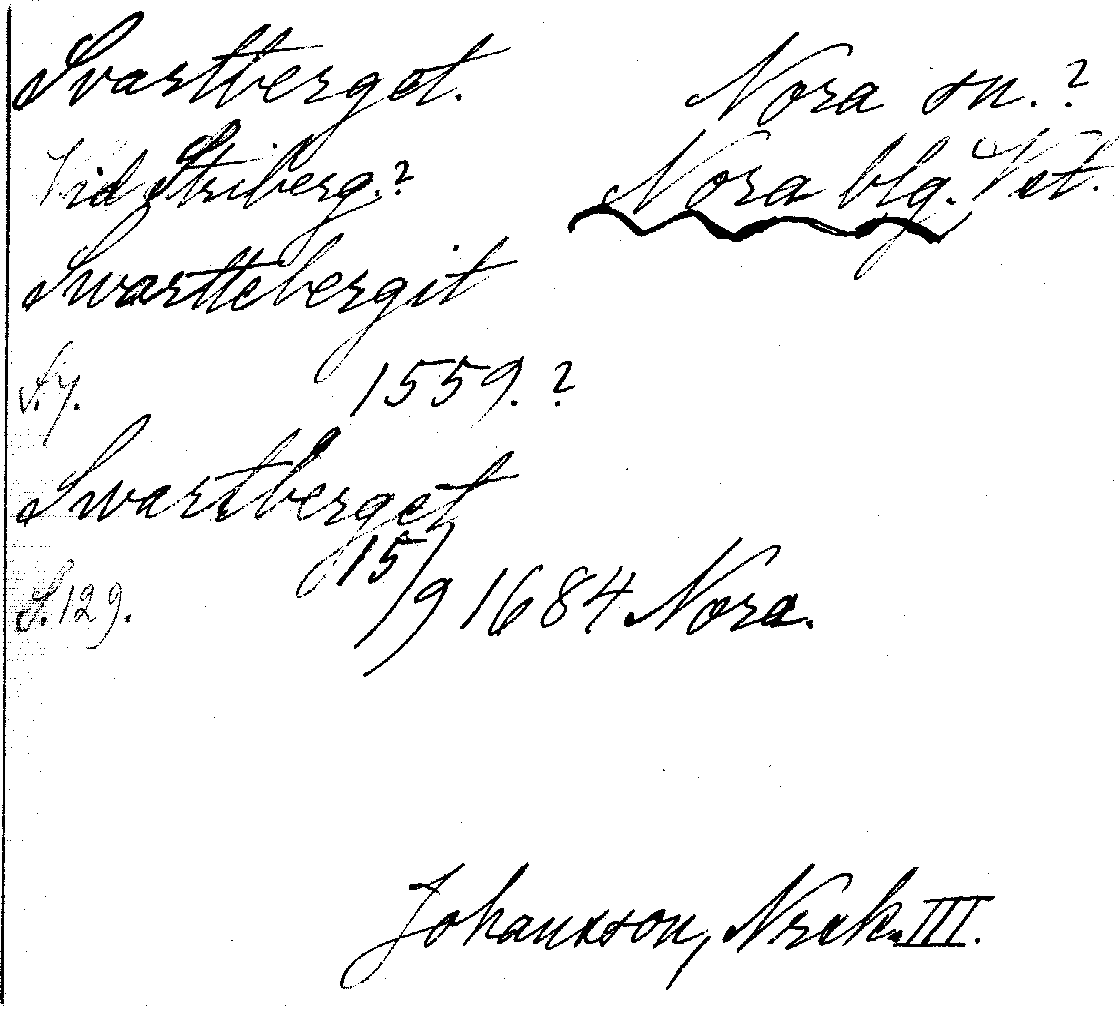 Svartberget. Nora sn.?
Vid Striberg.? Nora blg. Vet.
Swarttebergit
S.7. 1559.?
Swartberget
S.129. 15/9 1684 Nora.
Johansson, Nrek. III.